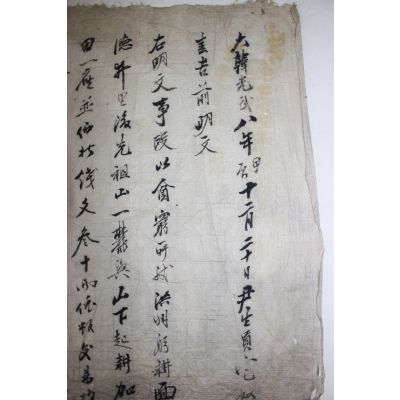 大韓光武八年甲辰十二月二十日尹生員
吉前明文
右明文事段以窮所致洪州躬耕面
德井里後先祖山一麓與山下起耕加
田一座並価折錢文叄十兩依數交易